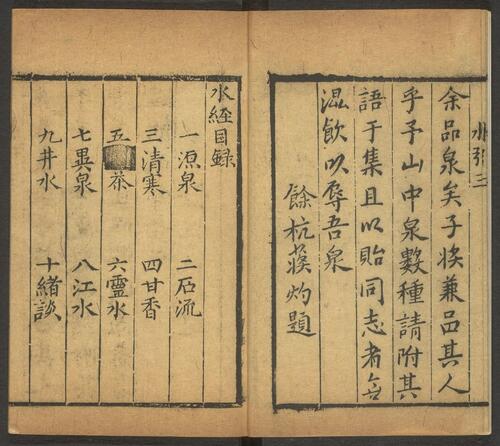 水引三
余品泉矣子將兼品其人
乎予山中泉數種請附其
語于集且以貽同志者毋
混飲以辱吾泉
餘杭蔣灼題
水經目録
一源泉 二石流
三清寒 四甘香
五茶 六靈水
七異泉 八江水
九井水 十緒談